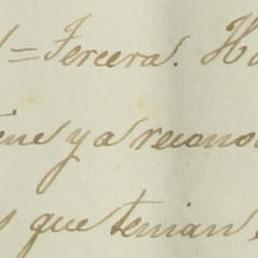 = Tercera. Ha
ene ya recono
s que tenian